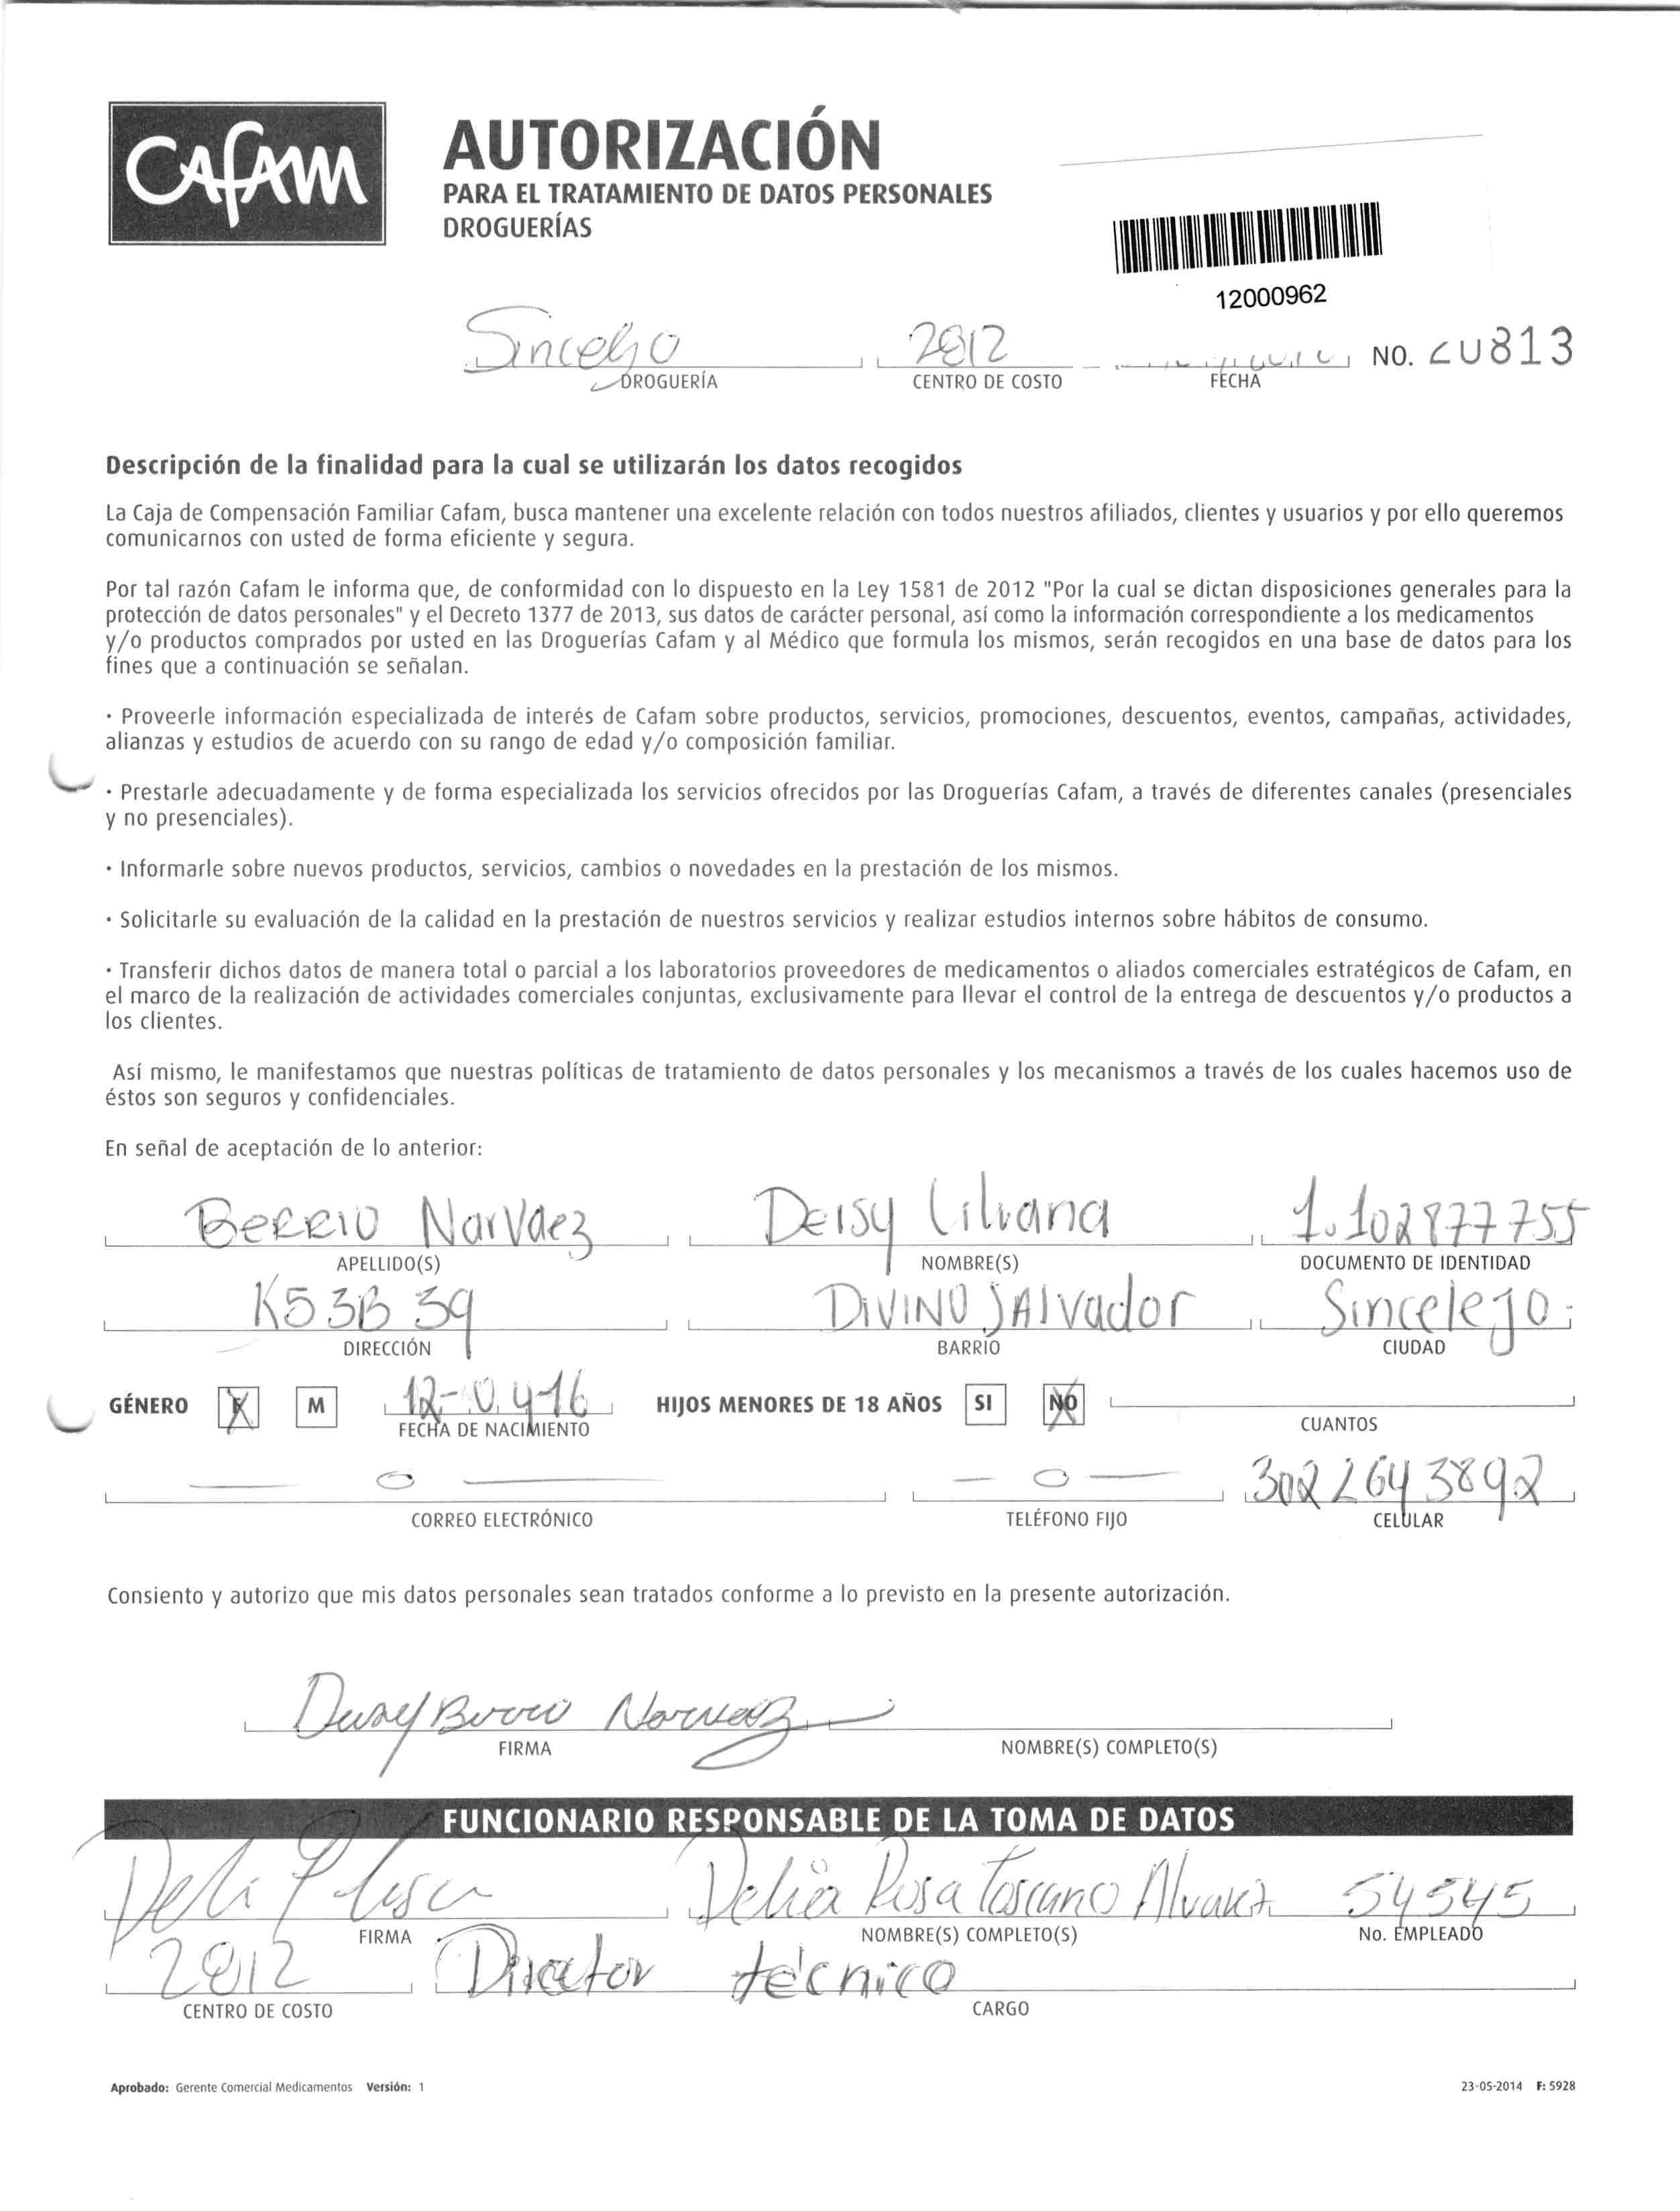 CAFAM
AUTORIZACIÓN
PARA EL TRATAMIENTO DE DATOS PERSONALES
DROGUERÍAS
12000962
Sincelejo 2812 NO.
DROGUERÍA CENTRO DE COSTO FECHA
Descripción de la finalidad para la cual se utilizarán los datos recogidos
La Caja de Compensación Familiar Cafam, busca mantener una excelente relación con todos nuestros afiliados, clientes y usuarios y por ello queremos
comunicarnos con usted de forma eficiente y segura.
Por tal razón Cafam le informa que, de conformidad con lo dispuesto en la Ley 1581 de 2012 "Por la cual se dictan disposiciones generales para la
protección de datos personales" y el Decreto 1377 de 2013, sus datos de carácter personal, así como la información correspondiente a los medicamentos
y/o productos comprados por usted en las Droguerías Cafam y al Médico que formula los mismos, serán recogidos en una base de datos para los
fines que a continuación se señalan.
· Proveerle información especializada de interés de Cafam sobre productos, servicios, promociones, descuentos, eventos, campañas, actividades,
alianzas y estudios de acuerdo con su rango de edad y/o composición familiar.
· Prestarle adecuadamente y de forma especializada los servicios ofrecidos por las Droguerías Cafam, a través de diferentes canales (presenciales
y no presenciales).
· Informarle sobre nuevos productos, servicios, cambios o novedades en la prestación de los mismos.
· Solicitarle su evaluación de la calidad en la prestación de nuestros servicios y realizar estudios internos sobre hábitos de consumo.
· Transferir dichos datos de manera total o parcial a los laboratorios proveedores de medicamentos o aliados comerciales estratégicos de Cafam, en
el marco de la realización de actividades comerciales conjuntas, exclusivamente para llevar el control de la entrega de descuentos y/o productos a
los clientes.
Así mismo, le manifestamos que nuestras políticas de tratamiento de datos personales y los mecanismos a través de los cuales hacemos uso de
éstos son seguros y confidenciales.
En señal de aceptación de lo anterior:
Berrio Narvaez Deisy Liliana 1.102877755
APELLIDO(S) NOMBRE(S) DOCUMENTO DE IDENTIDAD
K53B 39 DIVINO SAlvador Sincelejo
DIRECCIÓN BARRIO CIUDAD
GÉNERO F M 12-04-16 HIJOS MENORES DE 18 AÑOS SI NO
FECHA DE NACIMIENTO CUANTOS
— 0 — — 0 — 302 264 3892
CORREO ELECTRÓNICO TELÉFONO FIJO CELULAR
Consiento y autorizo que mis datos personales sean tratados conforme a lo previsto en la presente autorización.
Deisy Berrio Narvaez
FIRMA NOMBRE(S) COMPLETO(S)
FUNCIONARIO RESPONSABLE DE LA TOMA DE DATOS
Delia Rosa Toscano Alvarez 54545
FIRMA NOMBRE(S) COMPLETO(S) No. EMPLEADO
2812 Director técnico
CENTRO DE COSTO CARGO
Aprobado: Gerente Comercial Medicamentos Versión: 1 23-05-2014 F: 5928